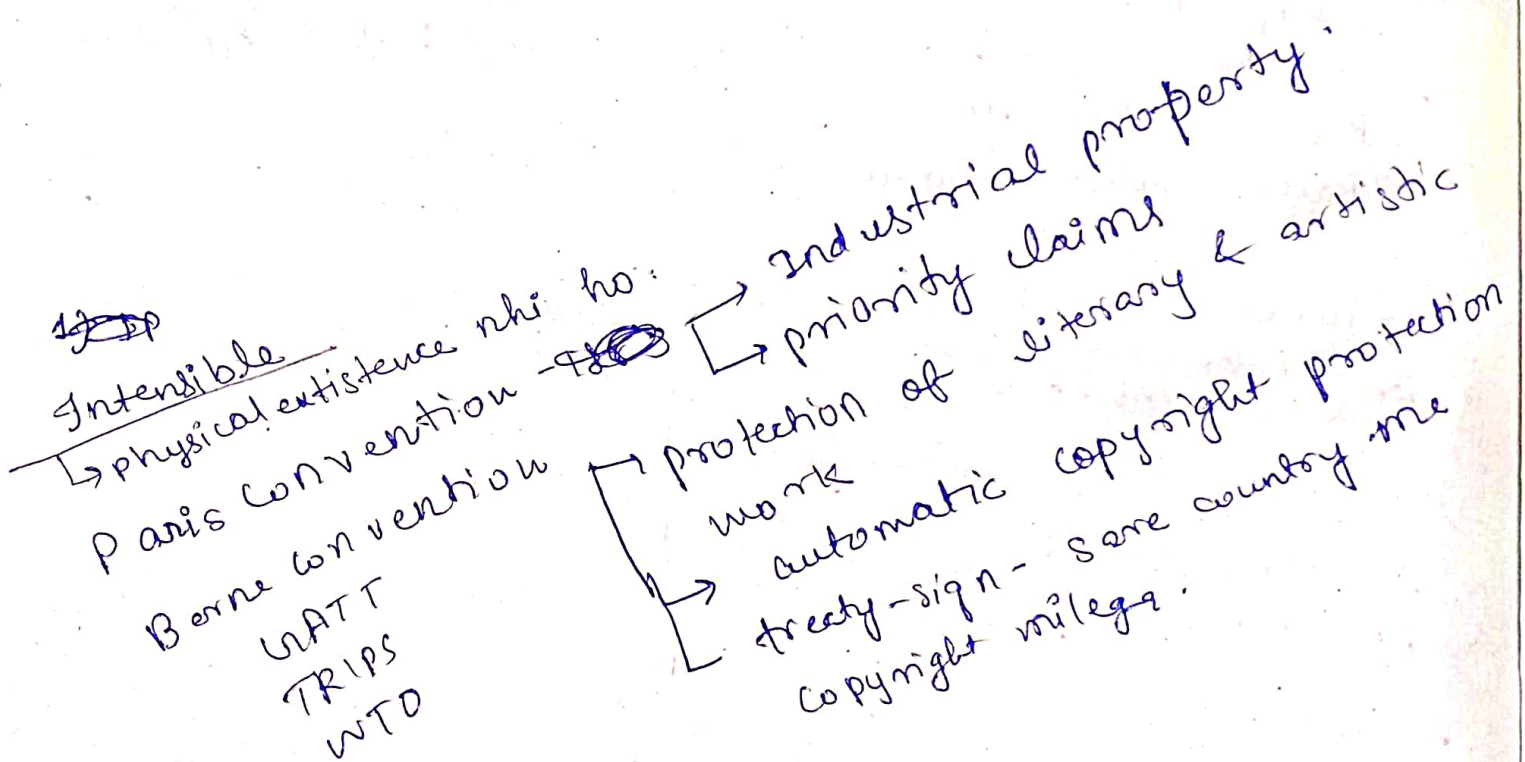 Intensible
physical extistence nhi ho.
Paris convention -
Industrial property.
priority claims
Berne convention
protection of literary & artistic
work
automatic copyright protection
treaty-sign - sare country me
copyright milega.
GATT
TRIPS
WTO